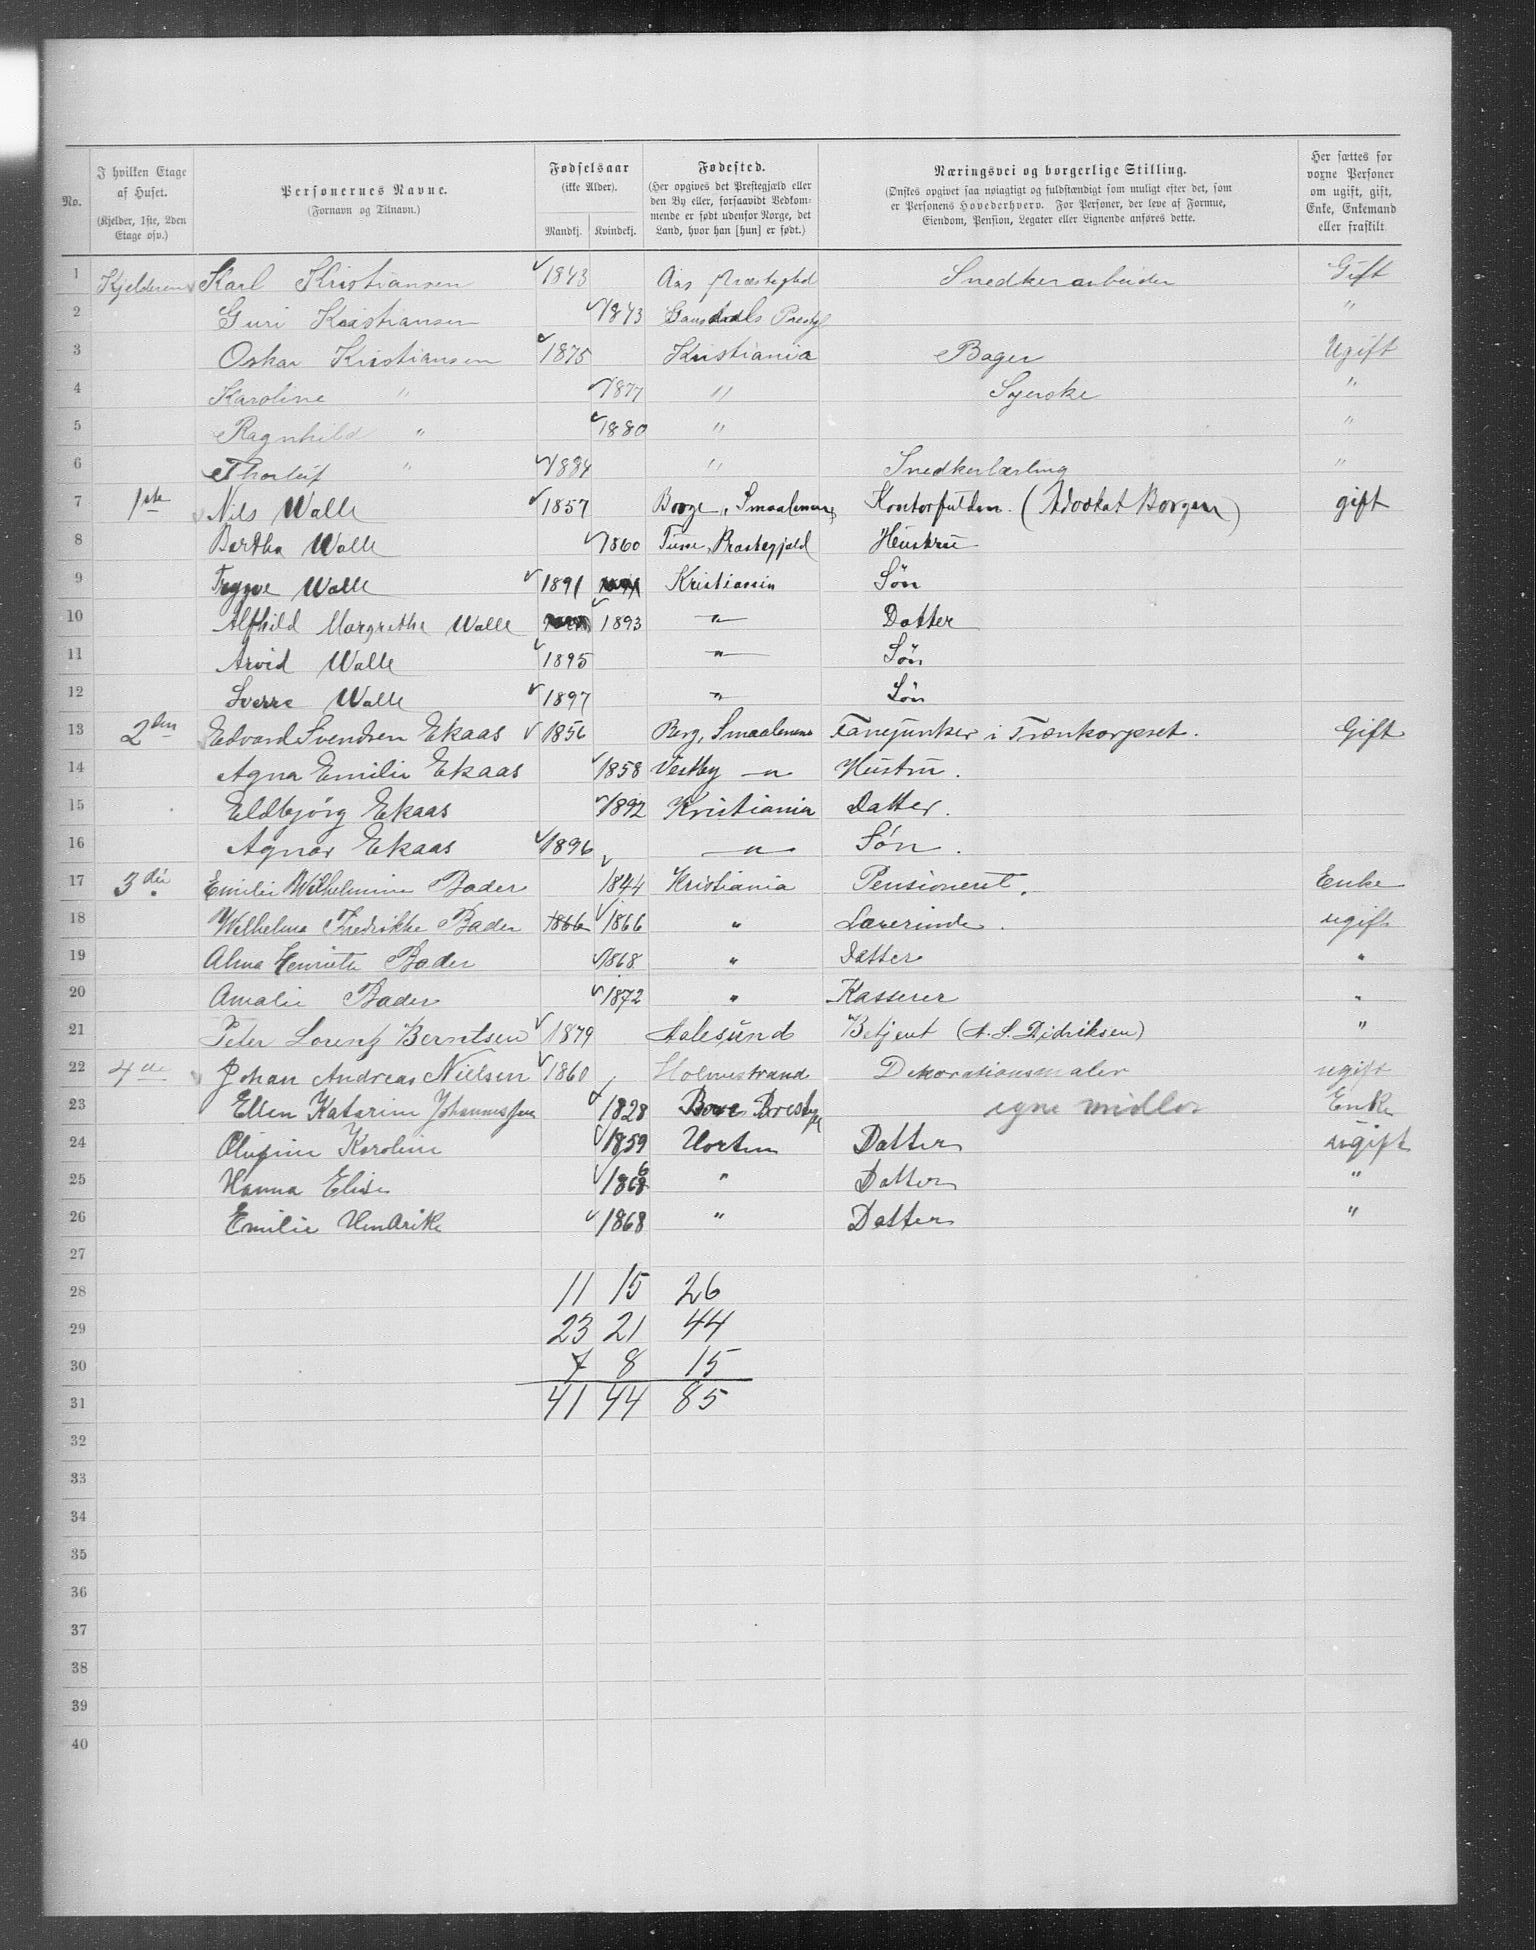 No. | I hvilken Etage af Huset. (Kjelder, 1ste, 2den Etage osv.) | Personernes Navne. (Fornavn og Tilnavn.) | Fødselsaar (ikke Alder). Mandkj. Kvindekj. | Fødested. (Her opgives det Prestegjæld eller den By eller, forsaavidt Vedkommende er født udenfor Norge, det Land, hvor han [hun] er født.) | Næringsvei og borgerlige Stilling. (Ønskes opgivet saa nøiagtigt og fuldstændigt som muligt efter det, som er Personens Hovederhverv. For Personer, der leve af Formue, Eiendom, Pension, Legater eller Lignende anføres dette. | Her sættes for voxne Personer om ugift, gift, Enke, Enkemand eller fraskilt.
1 Kjelderen Karl Kristiansen 1843 Aas Præstegjld Snedkerarbeider Gift
2 Guri Kristiansen 1843 Prestgj "
3 Oskar Kristiansen 1875 Kristiania Bager Ugift
4 Karoline " 1877 " Syerske "
5 Ragnhild " 1880 " "
6 Thorleif " 1884 " Snedkerlærling "
7 1ste Nils Walle 1857 Borge, Smaalenene Kontorfuldm. (Advokat Borgen) gift
8 Bertha Walle 1860 Præstegjeld Heustru
9 Trygve Walle 1891 Kristiania Søn
10 Alfhild Margrethe Walle 1893 " Datter
11 Arvid Walle 1895 " Søn
12 Sverre Walle 1897 " Søn
13 2den Edvard Svendsen Ekaas 1856 Berg, Smaalenene Fanejunker i Trænkorpset. Gift
14 Agna Emilie Ekaas 1858 Vestby " Hustru.
15 Eldbjörg Ekaas 1892 Kristiania Datter.
16 Agnar Ekaas 1896 " Søn.
17 3die Emilie Wilhelmine Bader 1844 Kristiania Pensioneret. Enke
18 Wilhelma Fredrikke Bader 1866 1866 " Lærerinde. ugift
19 Alma Henriette Bader 1868 " Datter "
20 Amalie Bader 1872 " Kasserer "
21 Peter Lorentz Berntsen 1879 Aalesund Betjent (A. S. Didriksen) "
22 4de Johan Andreas Nielsen 1860 Holmestrand Dekorationsmaler ugift
23 Ellen Katarine Johannessen 1828 Borre Prestegj egne midler Enke
24 Olufine Karoline 1859 Horten Datter ugift
25 Hanna Elise 1866 " Datter "
26 Emilie Hendrikke 1868 " Datter "
27
28 11 15 26
29 23 21 44
30 7 8 15
31 41 44 85
32
33
34
35
36
37
38
39
40